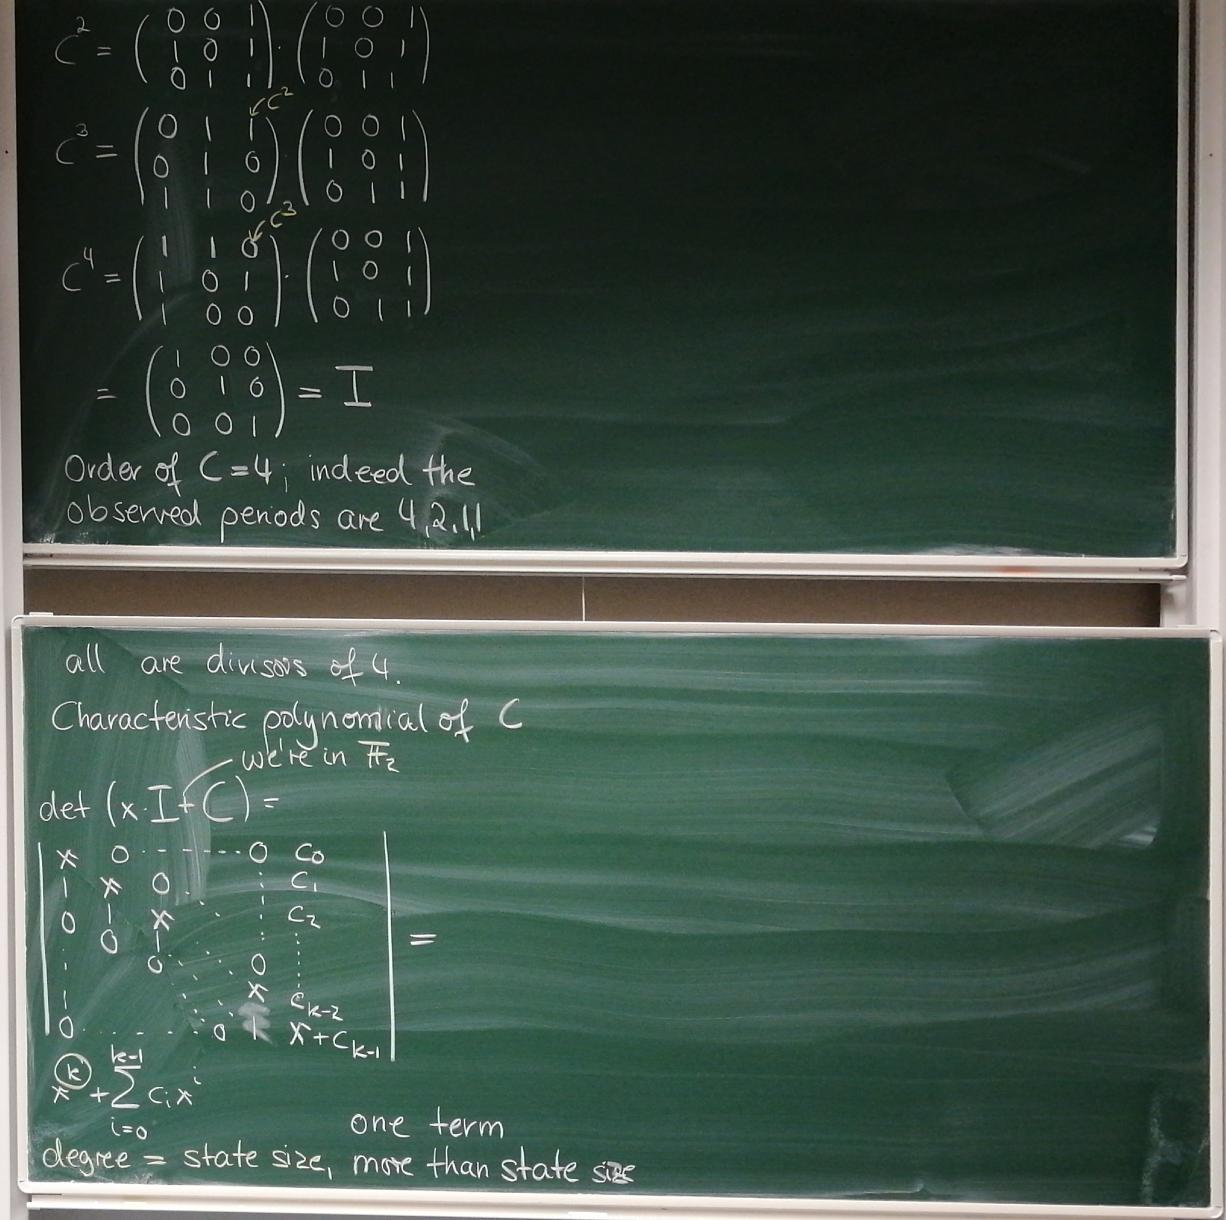 C² = ( 0 0 1 ) · ( 0 0 1 )
( 1 0 1 ) ( 1 0 1 )
( 0 1 1 ) ( 0 1 1 )
↙ C²
C³ = ( 0 1 1 ) ( 0 0 1 )
( 0 1 0 ) ( 1 0 1 )
( 1 1 0 ) ( 0 1 1 )
↙ C³
C⁴ = ( 1 1 0 ) · ( 0 0 1 )
( 1 0 1 ) ( 1 0 1 )
( 1 0 0 ) ( 0 1 1 )
= ( 1 0 0 ) = I
( 0 1 0 )
( 0 0 1 )
Order of C = 4; indeed the
observed periods are 4,2,1,1
all are divisors of 4.
Characteristic polynomial of C
we're in F₂
det (x·I+C) =
| x 0 ------- 0 c₀ |
| 1 x 0 . : c₁ |
| 0 1 x . . : c₂ | =
| . 0 1 . . : : |
| . 0 . . 0 : |
| . . . x c_{k-2} |
| 0 . . . . . 0 1 x+c_{k-1} |
x^k + Σ_{i=0}^{k-1} c_i x^i
one term
degree = state size, more than state size